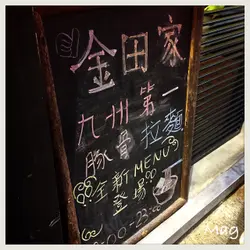 金田家
九州第一
豚骨拉麵
全新MENU
登場
:00-23:00
Mag